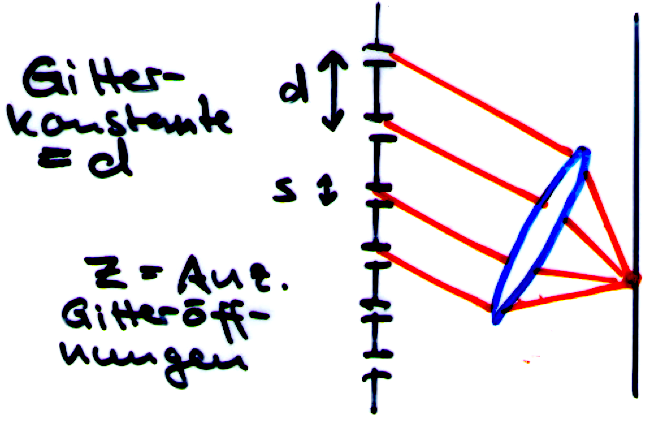 Gitter-
konstante
= d
d
s
Z = Anz.
Gitteröff-
nungen